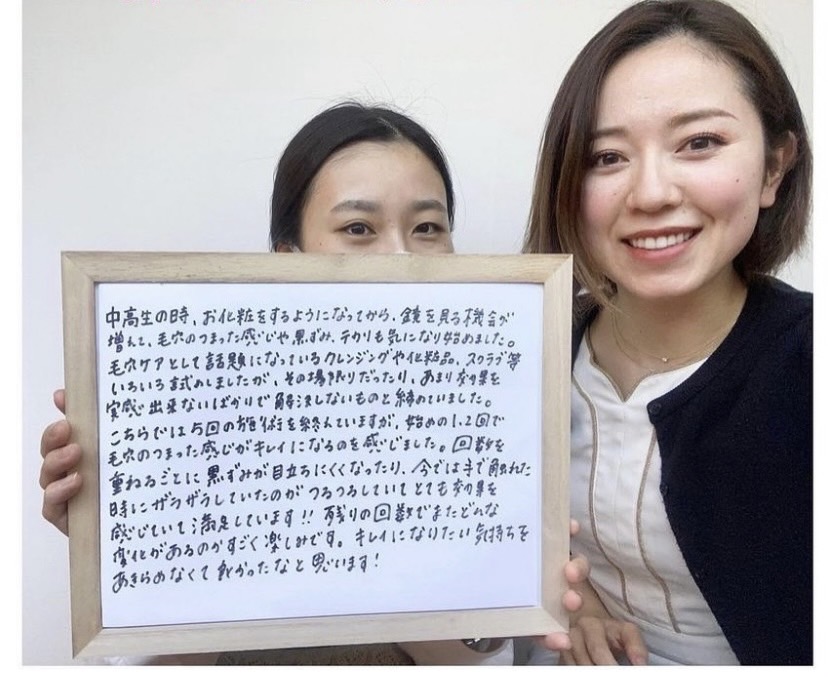 中高生の時、お化粧をするようになってから、鏡を見る機会が
増えて、毛穴のつまった感じや黒ずみ、テカりも気になり始めました。
毛穴ケアとして話題になっているクレンジングや化粧品、スクラブ等
いろいろ試めしましたが、その場限りだったり、あまり効果を
実感出来ないばかりで解決しないものと締めていました。
こちらでは5回の施術を終えていますが、始めの1.2回で
毛穴のつまった感じがキレイになるのを感じました。回数を
重ねるごとに黒ずみが目立ちにくくなったり、今では手で触れた
時にザラザラしていたのがつるつるしていてとても効果を
感じていて満足しています!! 残りの回数でまたどんな
変化があるのかすごく楽しみです。キレイになりたい気持ちを
あきらめなくて良かったなと思います!